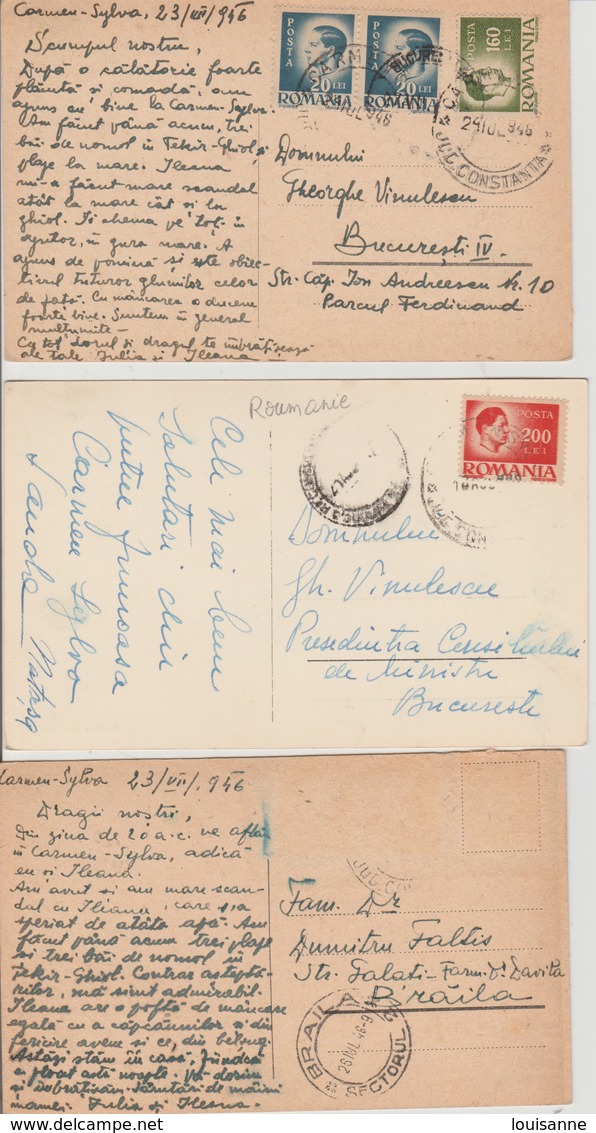 Carmen-Sylva, 23/VII/946
Scumpul nostru,
După o călătorie foarte
plăcută și comodă, am
ajuns cu bine la Carmen-Sylva.
Am făcut până acum, trei
băi de nomol în Tekir-Ghiol, și
plaje la mare. Ileana
mi-a făcut mare scandal
atât la mare cât și la
ghiol. Îi chema pe toți în
ajutor, în gura mare. A
ajuns de pomină și este obiec-
tivul tuturor glumelor celor
de față. Cu mâncarea o ducem
foarte bine. Suntem în general
mulțumite —
Cu tot dorul și dragul te îmbrățișează
ale tale Iulia și Ileana
POSTA
20 LEI
ROMANIA
POSTA
20 LEI
ROMANIA
POSTA
160
LEI
ROMANIA
24 IUL 946
JUD. CONSTANTA
Domnului
Gheorghe Vinulescu
București IV.
Str. Căp. Ion Andreescu Nr. 10
Parcul Ferdinand
Roumanie
Cele mai bune
salutări din
partea frumoasa
Carmen Sylva
Sanda
POSTA
200
LEI
ROMANIA
Domnului
Gh. Vinulescu
Presedintia Consiliului
de Ministri
Bucuresti
Carmen-Sylva 23/VII/946
Dragii noștri,
Din ziua de 20 a.c. ne aflăm
în Carmen-Sylva, adică
eu și Ileana.
Am avut și am mare scan-
dal cu Ileana, care s'a
speriat de atâta apă. Am
făcut până acum trei plaje
și trei băi de nomol în
Tekir-Ghiol. Contrar aștептă-
rilor, mă simt admirabil.
Ileana are o poftă de mâncare
egală cu a căpcăunilor și din
fericire avem și ce, din belșug.
Astăzi stăm în casă, fiindcă
a plouat astă noapte. Vă dorim
și îmbrățișăm. Sărutări de mâini
mamei. Iulia și Ileana.
JUD. CO
Fam. Dr
Dumitru Faltis
Str. Galati - Farm. Dr Davila
Brăila
BRAILA
26 IUL 46
SECTORUL
louisanne